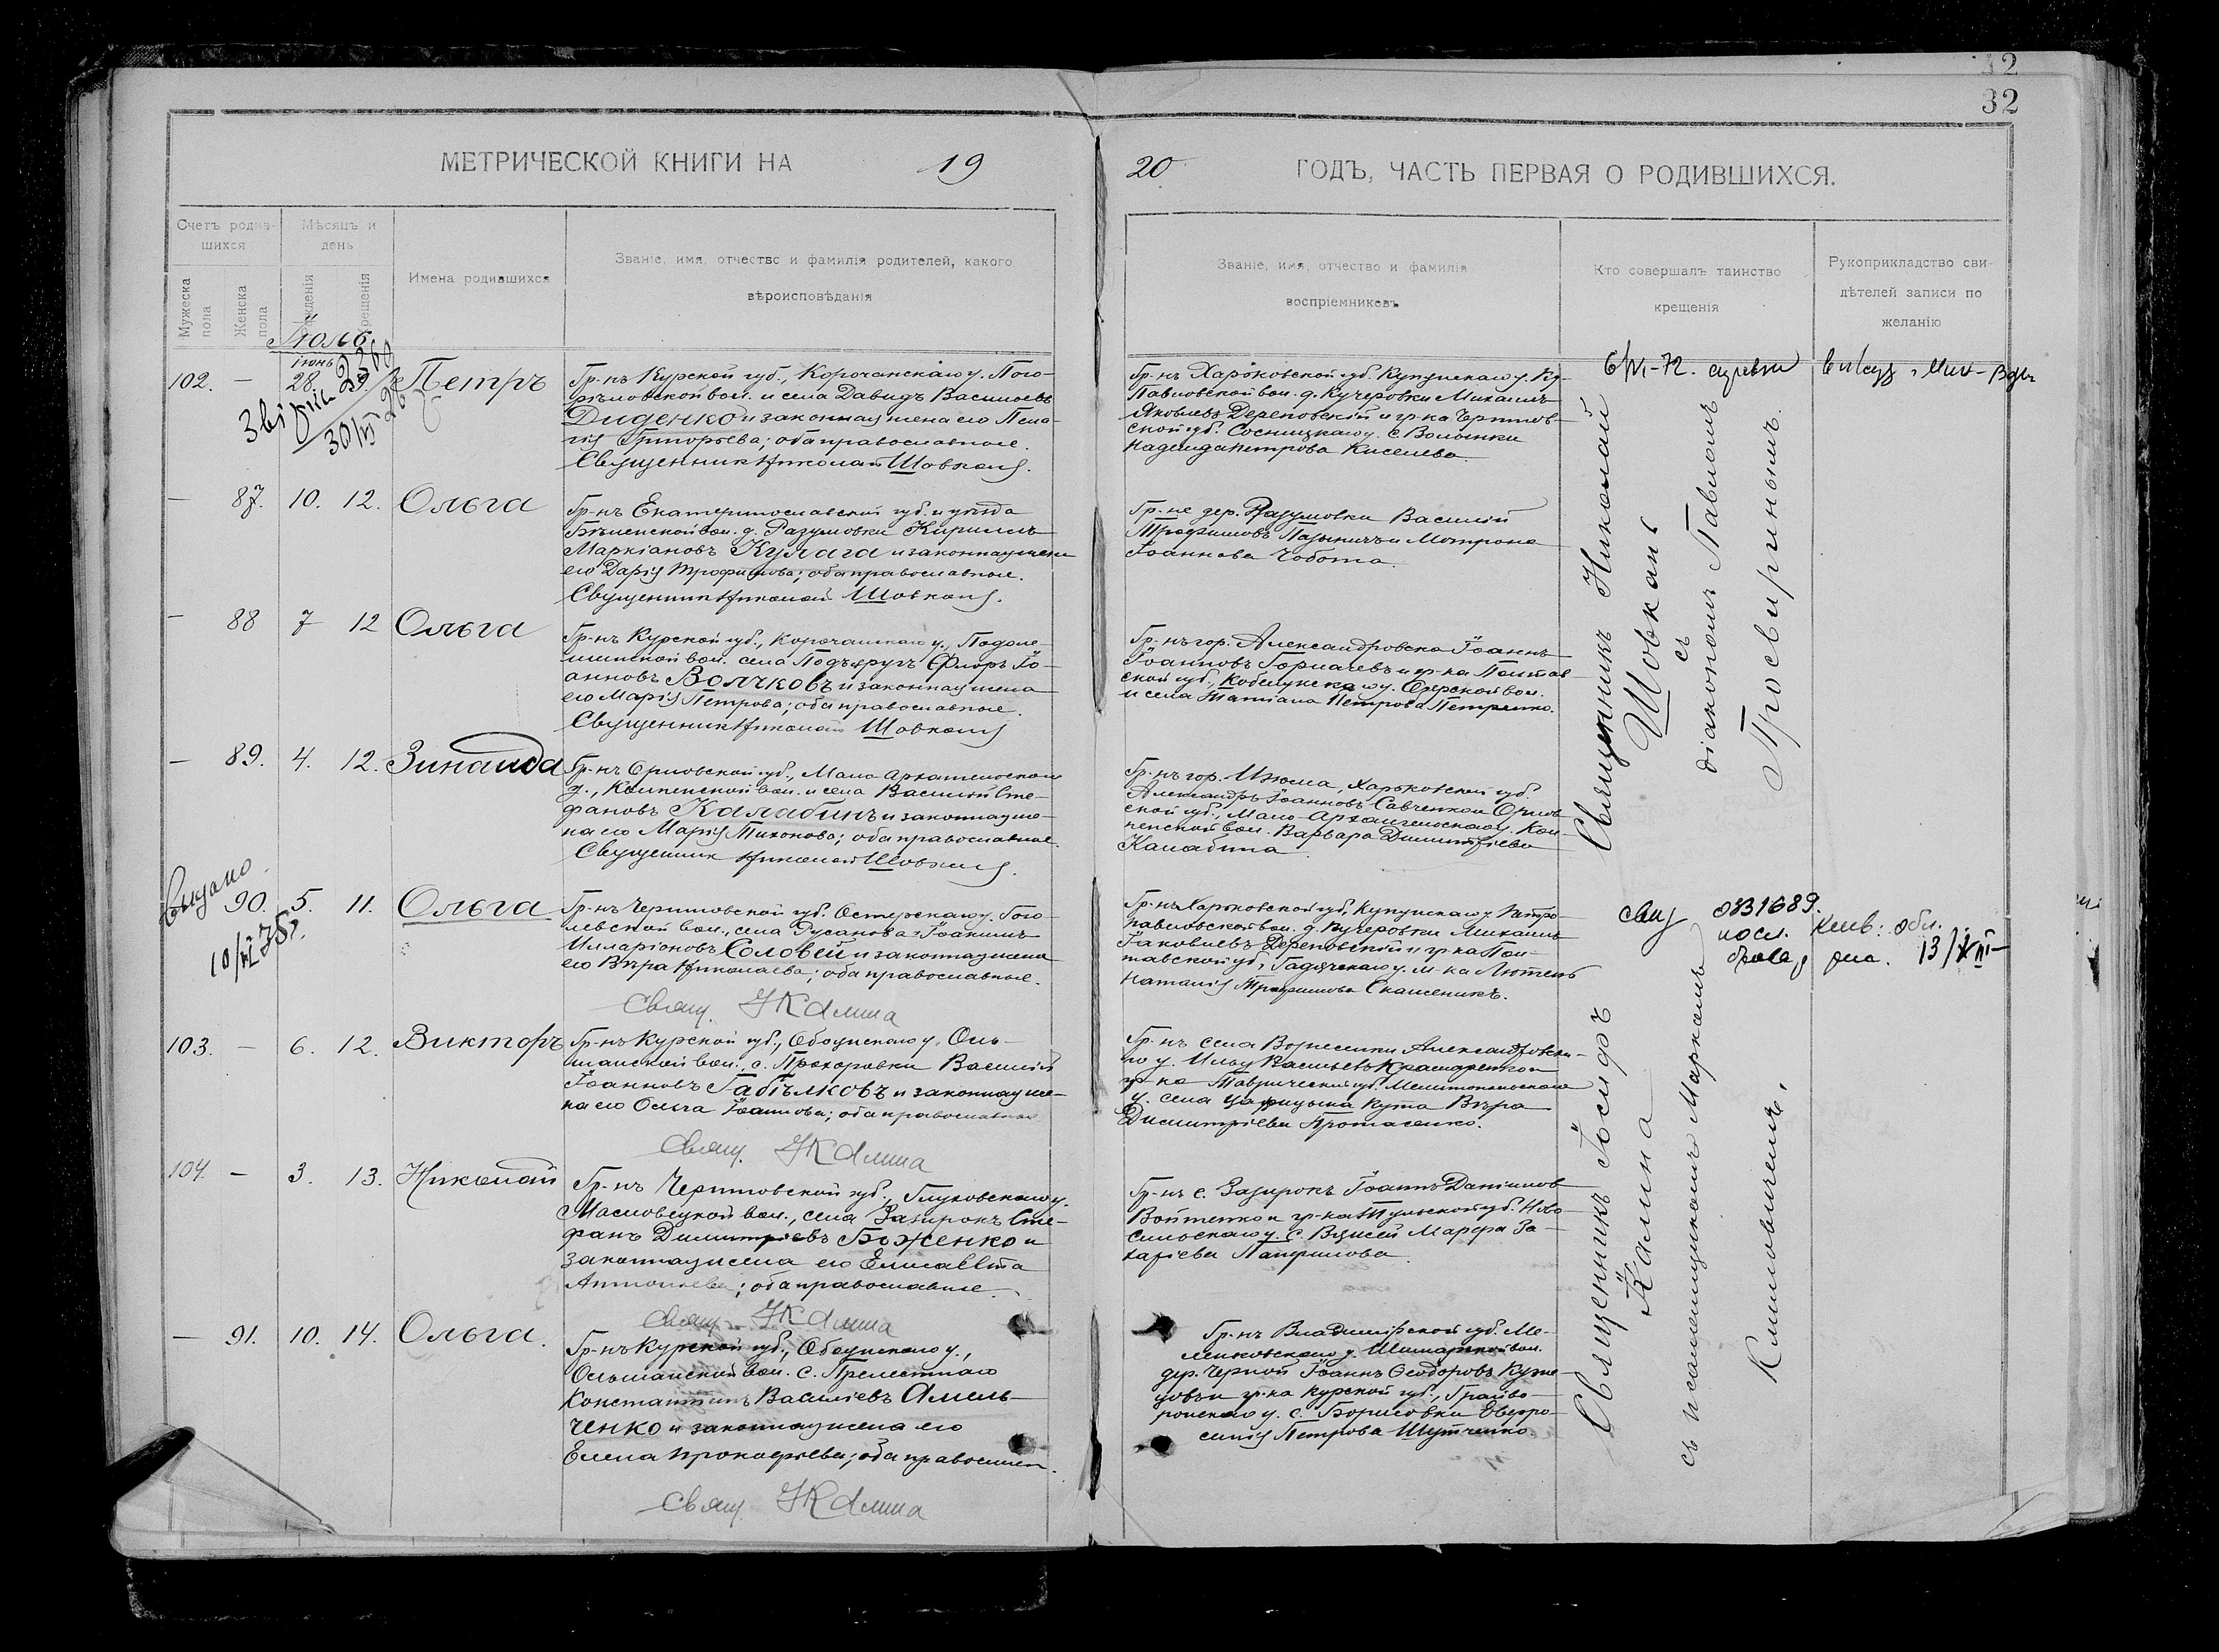 32
МЕТРИЧЕСКОЙ КНИГИ НА 19
20 ГОДЪ, ЧАСТЬ ПЕРВАЯ О РОДИВШИХСЯ.
Счетъ родив-
шихся
Мужеска пола
Женска пола
Мѣсяцъ и
день
рожденія
крещенія
Имена родившихся
Званіе, имя, отчество и фамилія родителей, какого
вѣроисповѣданія
Званіе, имя, отчество и фамилія
воспріемниковъ
Кто совершалъ таинство
крещенія
Рукоприкладство сви-
дѣтелей записи по
желанію
Іюль
102. — іюнь 28. 29. Петръ
Гр-нъ Курской губ., Корочанскаго у. Пого-
рѣловской вол. и села Давидъ Васильевъ
Диденко и законная жена его Пела-
гія Григорьева; оба православные.
Священникъ Николай Шовкань.
Гр-нъ Харьковской губ. Купянскаго у.
Павловской вол. д. Кучеровки Михаилъ
Яковлевъ Дереповскій и гр-ка Чернигов-
ской губ. Сосницкаго у. с. Волынки
Надежда Петрова Киселева.
6/VI-72.
— 87. 10. 12. Ольга
Гр-нъ Екатеринославской губ. и уѣзда
Бѣленской вол. д. Разумовки Кириллъ
Маркіановъ Кулага и законная жена
его Дарія Трофимова; оба православные.
Священникъ Николай Шовкань.
Гр-не дер. Разумовки Василій
Трофимовъ и Матрона
Іоаннова Чобота.
— 88 7 12 Ольга
Гр-нъ Курской губ., Корочанскаго у.,
вол. села Подъяругъ Флоръ Іо-
анновъ Волчковъ и законная жена
его Марія Петрова; оба православные.
Священникъ Николай Шовкань
Гр-нъ гор. Александровска Іоаннъ
Іоанновъ Горлачевъ и гр-ка Полтав
ской губ., Кобелякскаго у. вол.
и села Татіана Петрова Петренко.
— 89. 4. 12. Зинаида
Гр-нъ Орловской губ., Мало-Архангельскаго
у., вол. и села Василій Сте-
фановъ Калабинъ и законная же-
на его Марія Тихонова; оба православные.
Священникъ Николай Шовкань.
Гр-нъ гор. Изюма, Харьковской губ.
Александръ Іоанновъ Савченко и Орлов
ской губ., Мало-Архангельскаго у.
вол. Варвара Димитріева
Калабина.
Священникъ Николай
Шовкань
съ
діакономъ Павломъ
Просвиринымъ.
Выдано
90. 5. 11. Ольга
Гр-нъ Черниговской губ. Остерскаго у. Гого-
левской вол., села Русанова Іоакимъ
Илларіоновъ Соловей и законная жена
его Вѣра Николаева; оба православные.
Свящ. І Калина
Гр-нъ Харьковской губ., Купянскаго у. Петро-
павловской вол. д. Кучеровки Михаилъ
Іаковлевъ Дереповскій и гр-ка Пол-
тавской губ., Гадячскаго у. м-ка Лютень
Наталія
0831689.
103. — 6. 12. Викторъ
Гр-нъ Курской губ., Обоянскаго у. Оль-
шанской вол., с. Прохоровки Василій
Іоанновъ Габѣлковъ и законная же-
на его Ольга Іоаннова; оба православные
Свящ. І Калина
Гр-нъ села Вознесенки Александровска-
го у. Илья Васильевъ и
гр-ка Таврической губ. Мелитопольскаго
у. села Царицына Кута Вѣра
Димитріева Протасенко.
104. — 3. 13. Николай
Гр-нъ Черниговской губ., Глуховскаго у.
вол., села Зазирокъ Сте-
фанъ Димитріевъ Боженко и
законная жена его Елисавета
; оба православные.
Свящ. І Калина
Гр-нъ с. Зазирокъ Іоаннъ Даніиловъ
Войтенко и гр-ка Тульской губ. Ново-
сильскаго у. с. Марфа За-
харіева
— 91. 10. 14. Ольга.
Гр-нъ Курской губ., Обоянскаго у.,
Ольшанской вол. с. Прелестнаго
Константинъ Василіевъ Амель-
ченко и законная жена его
Елена Прокофіева; оба православн.
Свящ. І Калина
Гр-нъ Владимірской губ. Ме-
ленковскаго у. вол.
дер. Черной Іоаннъ Ѳеодоровъ Кузне-
цовъ и гр-ка Курской губ., Грайво-
ронскаго у. с. Борисовки Евфро-
синія Петрова
Священникъ Іосифъ
Калина
съ псаломщикомъ Маркомъ
Климовичемъ.